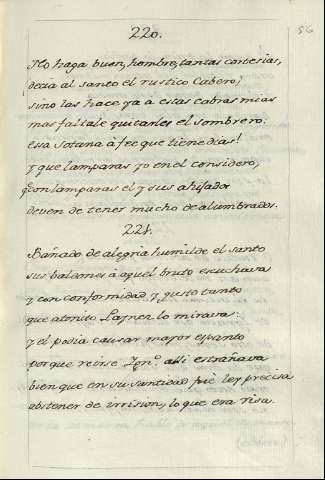 220.
56
No haga buen, hombre, tantas cortesias,
decia al santo el rustico Cabrero,
sino las hace ya a estas cabras mias
mas faltale quitarles el sombrero.
Essa sotana à fee que tiene dias!
y que lamparas yo en el considero,
con lamparas el y sus ahijados
deven de tener mucho de alumbrados.
221.
Bañado de alegria humilde el santo
sus baldones à aquel bruto escuchava
y con conformidad, y gusto tanto
que atonito Laynen lo mirava:
y el podia causar mayor espanto
porque reirse Ign.º alli estrañava
bien que en su santidad fuè ley precisa
abstener de irrision, lo que era risa.